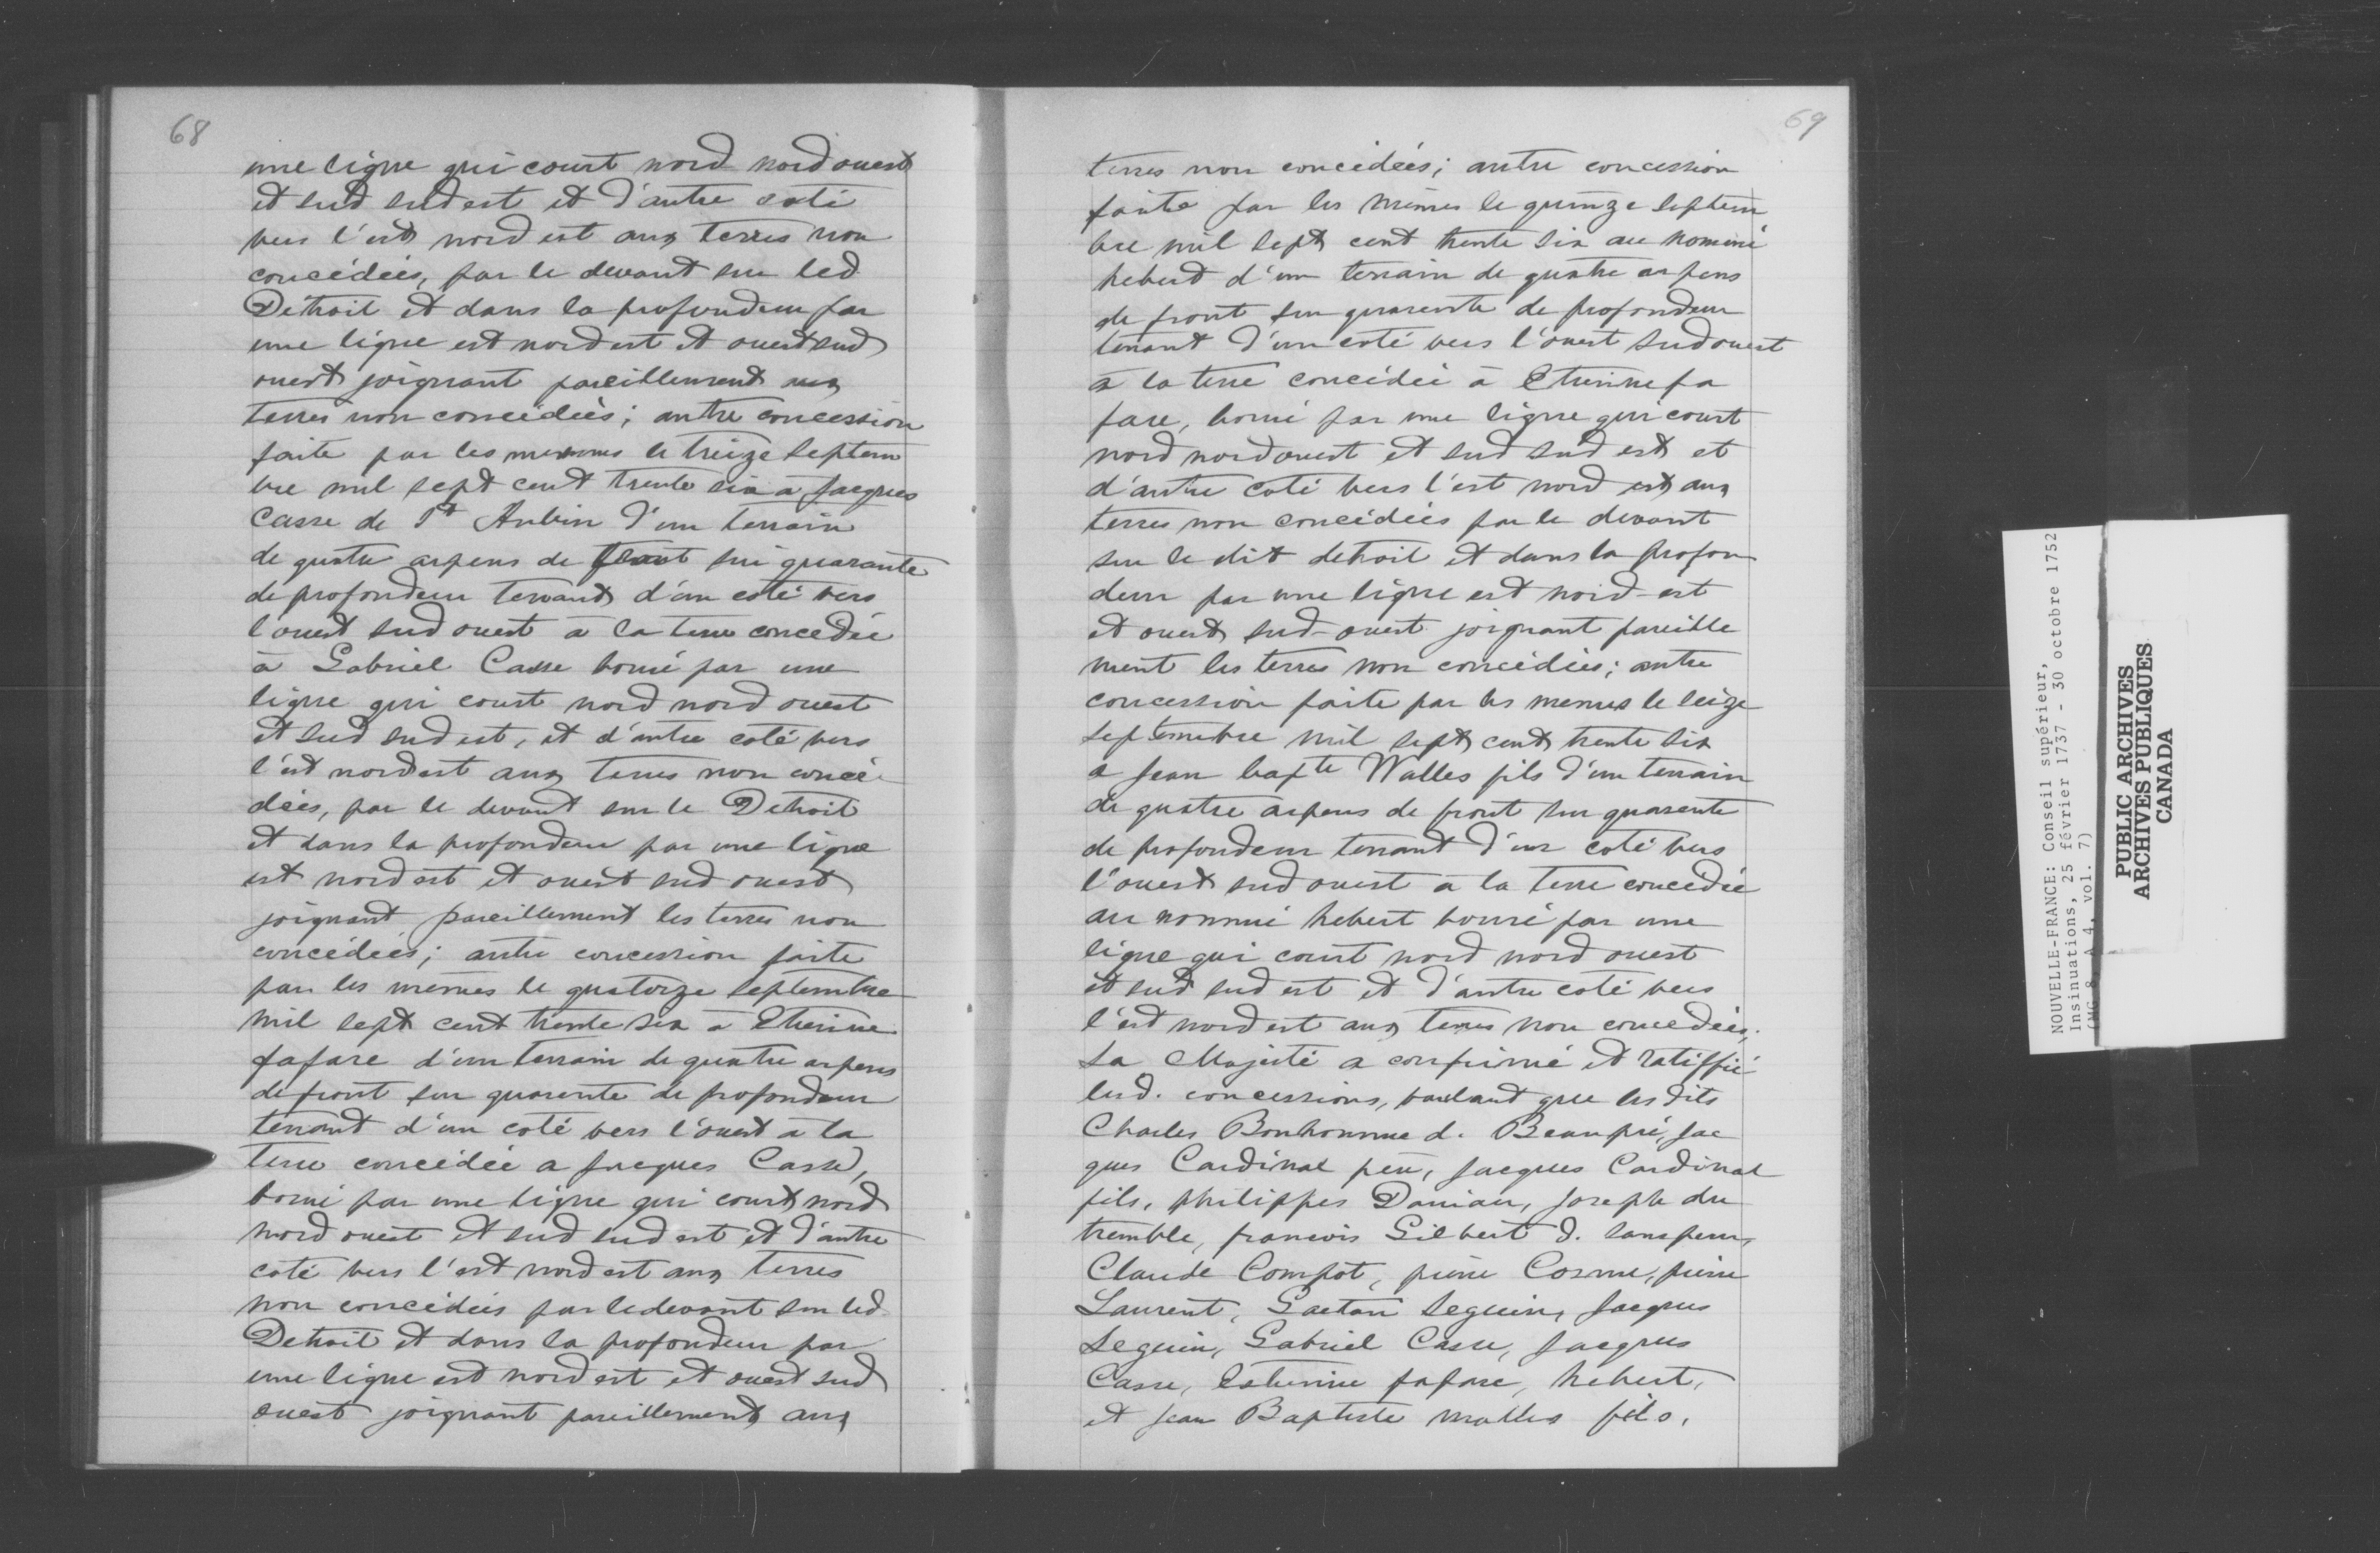 68
une ligne qui court nord nord ouest
et sud sud est et d'autre coté
vers l'est nord est aux terres non
concédées, par le devant sur led
Detroit et dans la profondeur par
une ligne est nord est et ouest sud
ouest joignant pareillement aux
terres non concédées; autre concession
faite par les memes le treize septem
bre mil sept cent trente six a Jacques
Casse de St Aubin d'un terrain
de quatre arpens de front sur quarante
de profondeur tenant d'un coté vers
l'ouest sud ouest à la terre concedée
à Gabriel Casse borné par une
ligne qui court nord nord ouest
et sud sud est, et d'autre coté vers
l'est nord est aux terres non concé-
dées, par le devant sur le Detroit
et dans la profondeur par une ligne
est nord est et ouest sud ouest
joignant pareillement les terres non
concédées; autre concession faite
par les mêmes le quatorze septembre
mil sept cent trente six à Etienne
fafare d'un terrain de quatre arpens
de front sur quarente de profondeur
tenant d'un coté vers l'ouest à la
terre concédée a Jacques Casse,
borné par une ligne qui court nord
nord ouest et sud sud est et d'autre
coté vers l'est nord est aux terres
non concédées par le devant sur led
Detroit et dans la profondeur par
une ligne est nord est et ouest sud
ouest joignant pareillement aux
69
terres non concédées; autre concession
faite par les mêmes le quinze septem
bre mil sept cent trente six au nommé
hebert d'un terrain de quatre arpens
de front sur quarente de profondeur
tenant d'un coté vers l'ouest sud ouest
à la terre concédée à Etienne fa
fare, borné par une ligne qui court
nord nord ouest et sud sud est et
d'autre coté vers l'est nord est aux
terres non concédées par le devant
sur le dit detroit et dans la profon
deur par une ligne est nord-est
et ouest sud-ouest joignant pareille
ment les terres non concédées; autre
concession faite par les memes le seize
septembre mil sept cent trente six
a Jean bapte Walles fils d'un terrain
de quatre arpens de front sur quarente
de profondeur tenant d'un coté vers
l'ouest sud ouest à la terre concedée
au nommé hebert borné par une
ligne qui court nord nord ouest
et sud sud est et d'autre coté vers
l'est nord est aux terres non concedées,
Sa Majesté a confirmé et ratiffié
lesd. concessions, voulant que les dits
Charles Bonhomme d. Beaupré, Jac
ques Cardinal pere, Jacques Cardinal
fils, philippes Daniau, Joseph du
tremble, francois Gilbert d. sanspeur,
Claude Compot, pierre Cosme, pierre
Laurent, Gaetan Seguin, Jacques
Seguin, Gabriel Casse, Jacques
Casse, Estienne fafare, hebert,
et Jean Baptiste malles fils,
NOUVELLE-FRANCE: Conseil supérieur,
Insinuations, 25 février 1737 - 30 octobre 1752
(MG 8, A 4, vol. 7)
PUBLIC ARCHIVES
ARCHIVES PUBLIQUES
CANADA